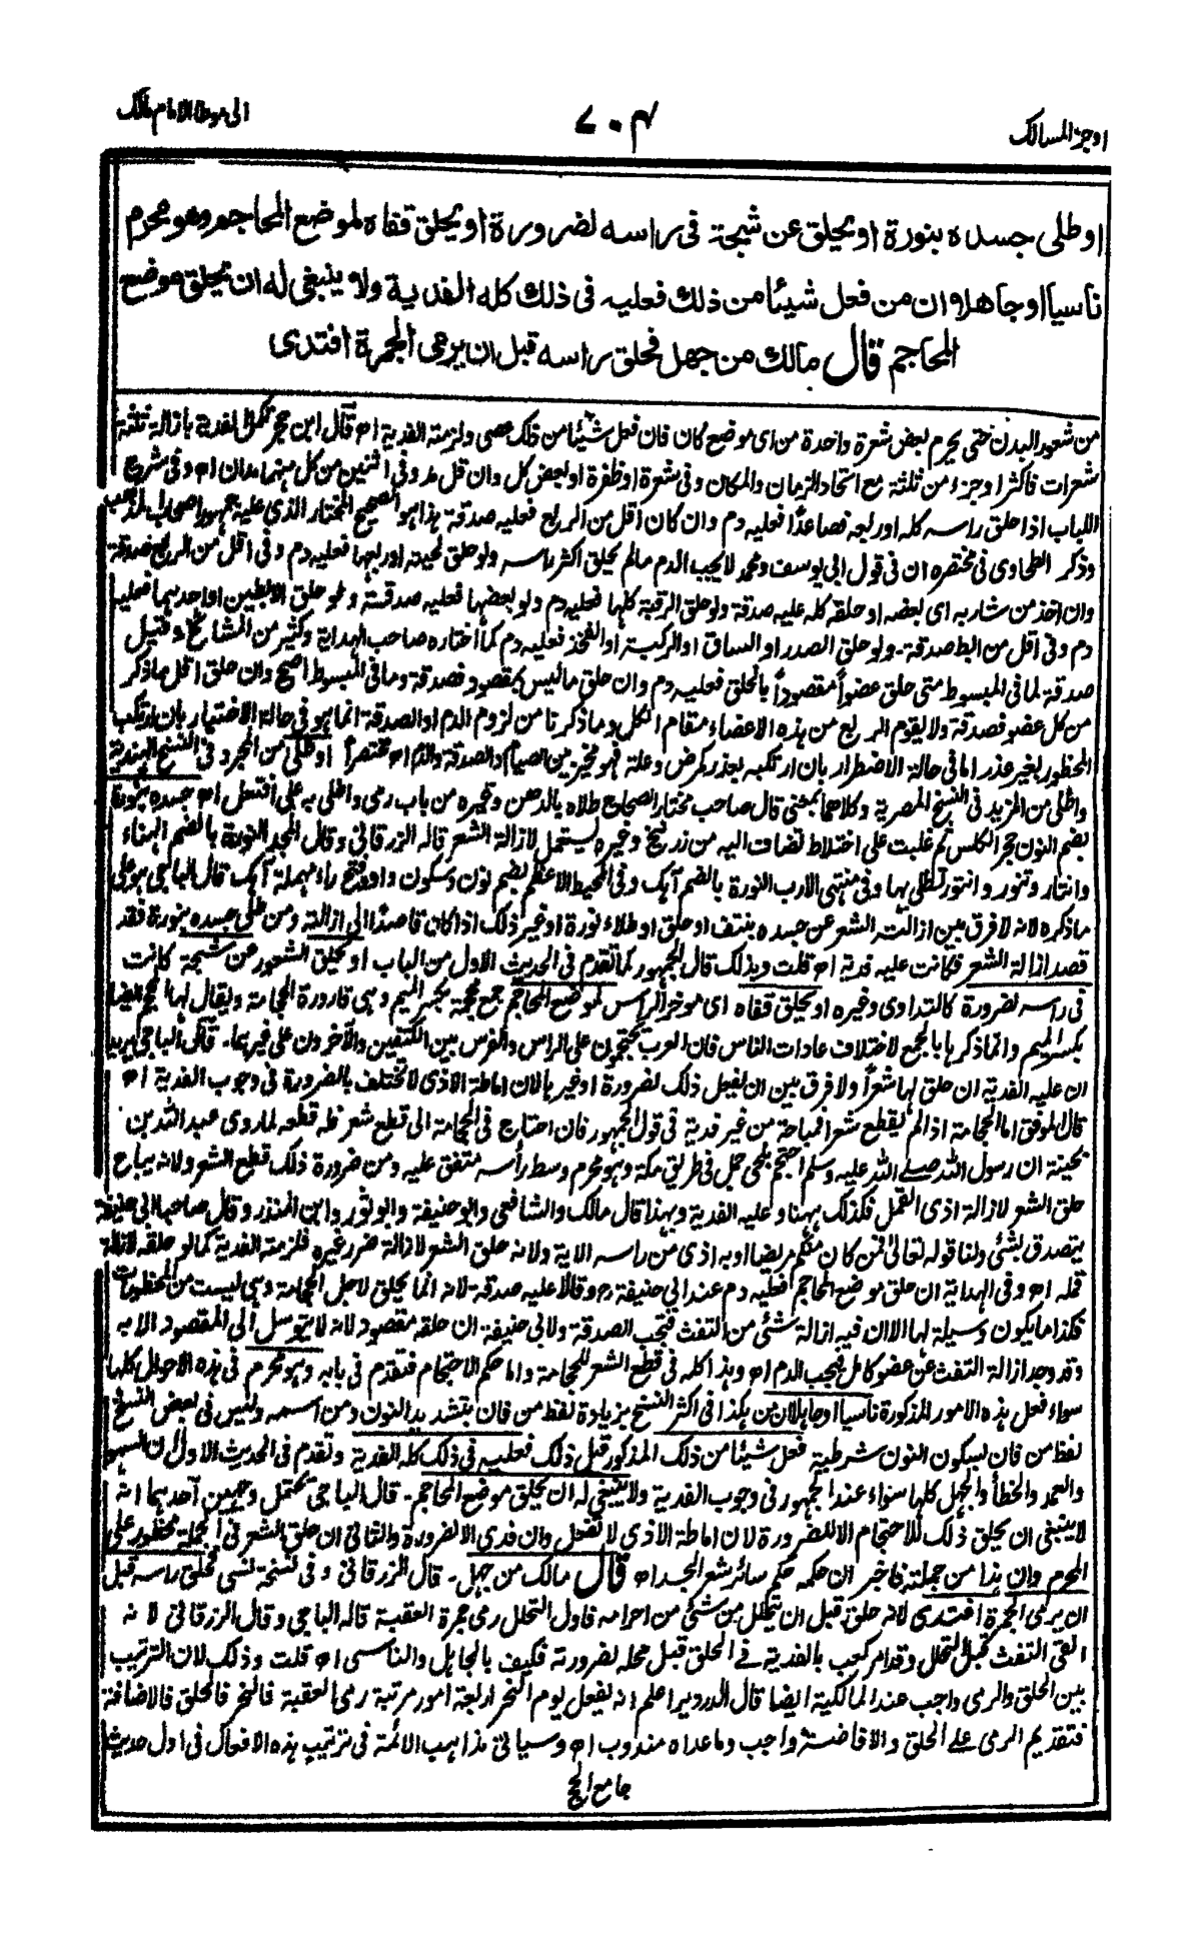 اوجز المسالك
٧٠٤
الى موطا الامام مالك
او طلى جسده بنورة او يحلق عن شجة فى راسه لضرورة او يحلق قفاه لموضع المحاجم وهو محرم
ناسيا او جاهلا وان من فعل شيئا من ذلك فعليه فى ذلك كله الفدية ولا ينبغى له ان يحلق موضع
المحاجم قال مالك من جهل فحلق راسه قبل ان يرمى الجمرة افتدى
من شعور البدن حتى يحرم بعض شعرة واحدة من اى موضع كان فان فعل شيئا من ذلك عصى ولزمته الفدية اھ قال ابن حجر تكمل الفدية بازالة ثلثة
شعرات فاكثر او جزء من ثلثة مع اتحاد الزمان والمكان وفى شعرة او ظفرة او بعض كل وان قل مد وفى اثنين من كل منهما مدان اھ وفى شرح
اللباب اذا حلق راسه كله او ربعه فصاعدا فعليه دم وان كان اقل من الربع فعليه صدقة هذا هو الصحيح المختار الذى عليه جمهور اصحاب المذهب
وذكر الطحاوى فى مختصره ان فى قول ابى يوسف ومحمد لا يجب الدم مالم يحلق اكثر راسه ولو حلق لحيته او ربعها فعليه دم وفى اقل من الربع صدقة
وان اخذ من شاربه اى بعضه او حلقه كله عليه صدقة ولو حلق الرقبة كلها فعليه دم ولو بعضها فعليه صدقة ولو حلق الابطين او احدهما فعليه
دم وفى اقل من ابط صدقة۔ ولو حلق الصدر او الساق او الركبة او الفخذ فعليه دم كما اختاره صاحب الهداية وكثير من المشائخ وقيل
صدقة لما فى المبسوط متى حلق عضوا مقصودا بالحلق فعليه دم وان حلق ما ليس بمقصود فصدقة وما فى المبسوط اصح وان حلق اقل ماذكر
من كل عضو فصدقة ولا يقوم الربع من هذه الاعضاء مقام الكل وما ذكرنا من لزوم الدم او الصدقة انما هو فى حالة الاختيار بان ارتكب
المحظور بغير عذر اما فى حالة الاضطرار بان ارتكبه بعذر كمرض وعلة فهو مخير بين الصيام والصدقة والدم اھ مختصرا او طلى من المجرد فى النسخ الهندية
واطلى من المزيد فى النسخ المصرية وكلاهما بمعنى قال صاحب مختار الصحاح طلاه بالدهن وغيره من باب رمى واطلى به على افتعل اھ جسده بنورة
بضم النون حجر الكلس ثم غلبت على اختلاط تضاف اليه من زرنيخ وغيره يستعمل لازالة الشعر قاله الزرقانى وقال المجد النورة بالضم الهناء
وانتار وتنور وانتور تطلى بها وفى منتهى الارب النورة بالضم آہک وفى المحيط الاعظم بضم نون وسكون واو وفتح راء مهملة آہک قال الباجى هو على
ما ذكره لانه لا فرق بين ازالة الشعر عن جسده بنتف او حلق او طلاء نورة او غير ذلك اذا كان قاصدا الى ازالته ومن طلى جسده بنورة فقد
قصد ازالة الشعر فكانت عليه فدية اھ قلت وبذلك قال الجمهور كما تقدم فى الحديث الاول من الباب او يحلق الشعور عن شجة كانت
فى راسه لضرورة كالتداوى وغيره او يحلق قفاه اى موخر الراس لموضع المحاجم جمع محجمة بكسر الميم وهى قارورة الحجامة ويقال لها محجم ايضا
بكسر الميم وانما ذكرها بالجمع لاختلاف عادات الناس فان العرب تحتجمون على الراس والفرس بين الكتفين والآخرون على غيرهما۔ قال الباجى يريد
ان عليه الفدية ان حلق لها شعرا ولا فرق بين ان يفعل ذلك لضرورة او غيرها لان اماطة الاذى لا تختلف بالضرورة فى وجوب الفدية اھ
قال الموفق اما الحجامة اذا لم يقطع شعرا فمباحة من غير فدية فى قول الجمهور فان احتاج فى الحجامة الى قطع شعر فله قطعه لما روى عبد الله بن
بحينة ان رسول الله صلى الله عليه وسلم احتجم بلحى جمل فى طريق مكة وهو محرم وسط راسه متفق عليه ومن ضرورة ذلك قطع الشعر ولانه يباح
حلق الشعر لازالة اذى القمل فكذلك ههنا وعليه الفدية وبهذا قال مالك والشافعى وابو حنيفة وابو ثور وابن المنذر وقال صاحبا ابى حنيفة
يتصدق بشئ ولنا قوله تعالى فمن كان منكم مريضا او به اذى من راسه الاية ولانه حلق الشعر لازالة ضرر غيره فلزمته الفدية كما لو حلقه لازالة
قمله اھ وفى الهداية ان حلق موضع المحاجم فعليه دم عند ابى حنيفة رح وقالا عليه صدقة لانه انما يحلق لاجل الحجامة وهى ليست من المحظورات
فكذا ما يكون وسيلة لها الا ان فيه ازالة شئ من التفث فتجب الصدقة ولابى حنيفة ان حلقه مقصود لانه لا يتوسل الى المقصود الا به
وقد وجد ازالة التفث عن عضو كامل فيجب الدم اھ وهذا كله فى قطع الشعر للحجامة واما حكم الاحتجام فتقدم فى بابه وهو محرم فى هذه الاحوال كلها
سواء فعل هذه الامور المذكورة ناسيا او جاهلا ان من هكذا فى اكثر النسخ بزيادة لفظ من فان بتشديد النون ومن اسمه وليس فى بعض النسخ
لفظ من فان بسكون النون شرطية فعل شيئا من ذلك المذكور قبل ذلك فعليه فى ذلك كله الفدية وتقدم فى الحديث الاول ان السهو
والعمد والخطأ والجهل كلها سواء عند الجمهور فى وجوب الفدية ولا ينبغى له ان يحلق موضع المحاجم۔ قال الباجى يحتمل وجهين احدهما انه
لا ينبغى ان يحلق ذلك للاحتجام الا للضرورة لان اماطة الاذى لا تفعل وان فدى الا لضرورة والثانى ان حلق الشعر فى الجملة محظور على
المحرم وان هذا من جملته فاخبر ان حكمه حكم سائر شعر الجسد اھ قال مالك من جهل۔ قال الزرقانى وفى نسخة نسى فحلق راسه قبل
ان يرمى الجمرة افتدى لانه حلق قبل ان يتحلل من شئ من احرامه فاول التحلل رمى جمرة العقبة قاله الباجى وقال الزرقانى لانه
القى التفث قبل التحلل وقد امر كعب بالفدية فى الحلق قبل محله لضرورته فكيف بالجاهل والناسى اھ قلت وذلك لان الترتيب
بين الحلق والرمى واجب عند المالكية ايضا قال الدردير اعلم انه يفعل يوم النحر اربعة امور مرتبة رمى العقبة فالنحر فالحلق فالاضافة
فتقديم الرمى على الحلق والافاضة واجب وما عداه مندوب اھ وسياتى مذاهب الائمة فى ترتيب هذه الافعال فى اول حديث
جامع الحج